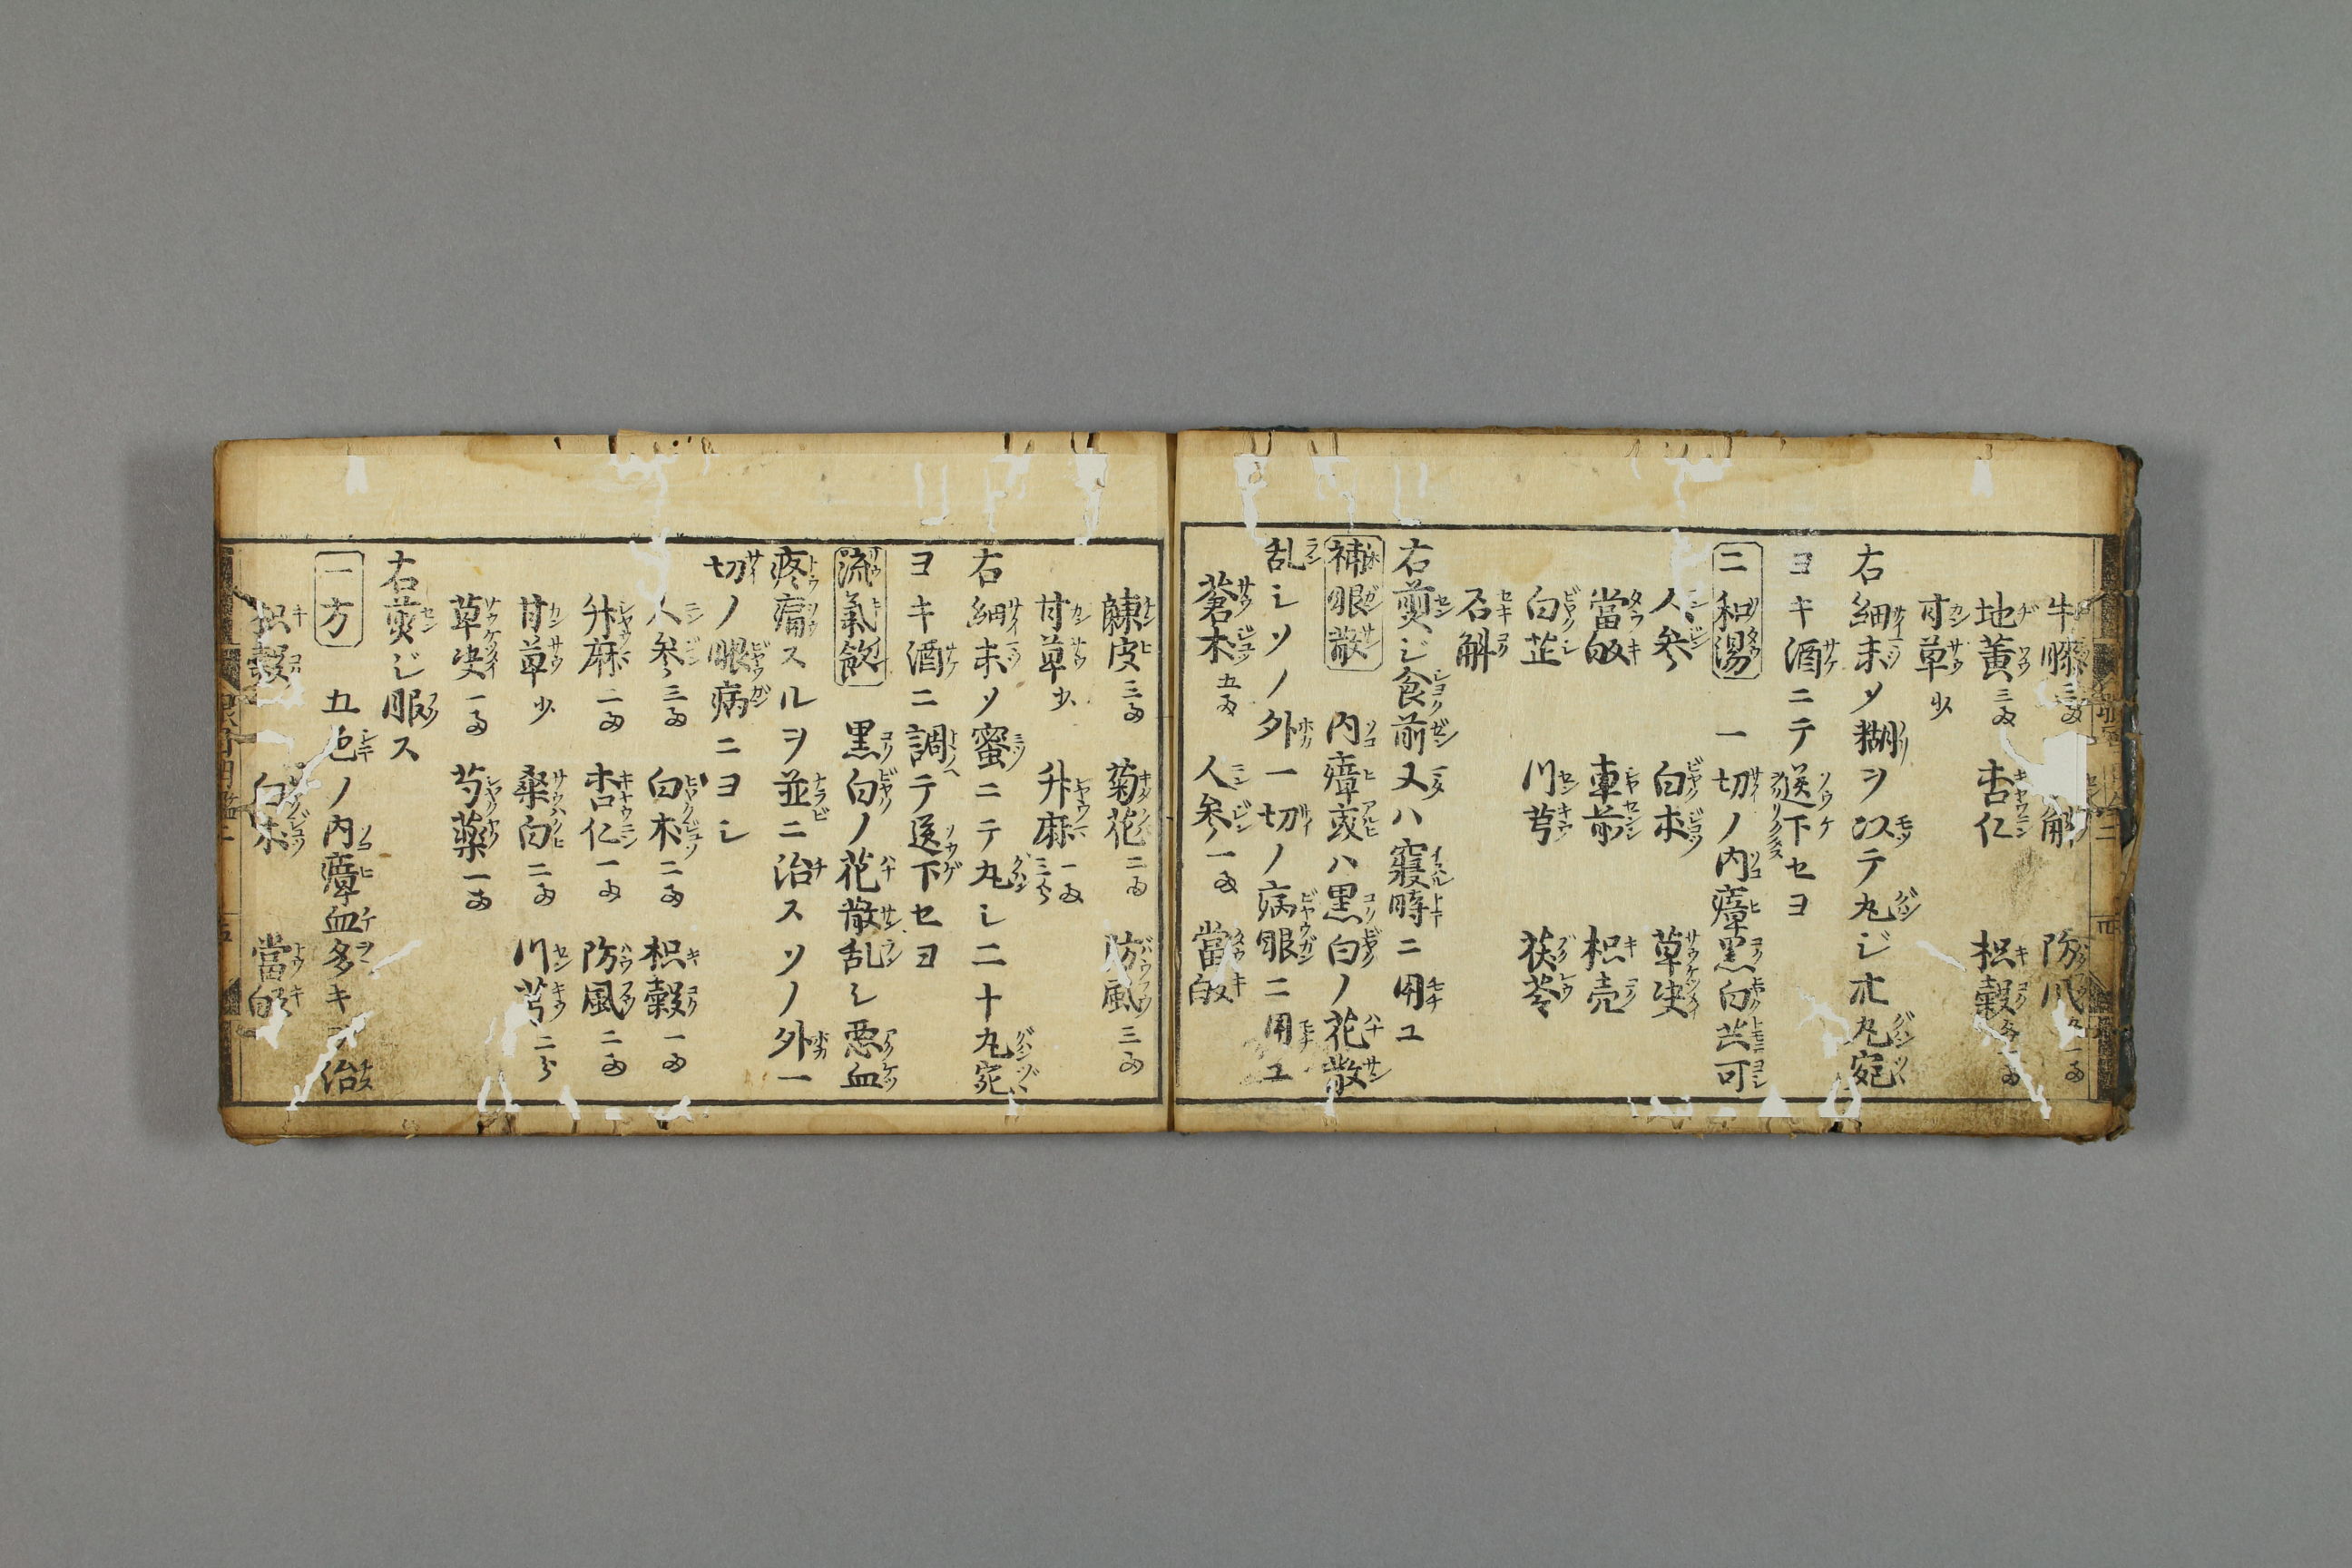 牛膝三両 解 防風一両
地黄三両 杏仁 枳穀一両
甘草少
右細末ソ糊ヲ以テ丸ジ卅丸宛
ヨキ酒ニテ送下セヨ
二和湯 一切ノ内瘴黒白共可
人参 白朮 草决
當皈 車前 枳壳
白芷 川芎 茯苓
石斛
右煎ジ食前又ハ寝時ニ用ユ
補眼散 内瘴或ハ黒白ノ花散
乱シソノ外一切ノ病眼ニ用ユ
蒼朮五両 人参一両 當皈
皮三両 菊花二両 防風三両
甘草少 升麻一両三分
右細末ソ蜜ニテ丸シ二十丸宛
ヨキ酒ニ調テ送下セヨ
流氣飲 黒白ノ花散乱シ悪血
疼痛スルヲ並ニ治スソノ外一
切ノ眼病ニヨシ
人参三両 白朮二両 枳穀一両
升麻二両 杏仁一両 防風二両
甘草少 桒白二両 川芎二分
草决一両 芍薬一両
右煎ジ服ス
一方 五色ノ内瘴血多キヲ治
枳穀 白朮 當皈